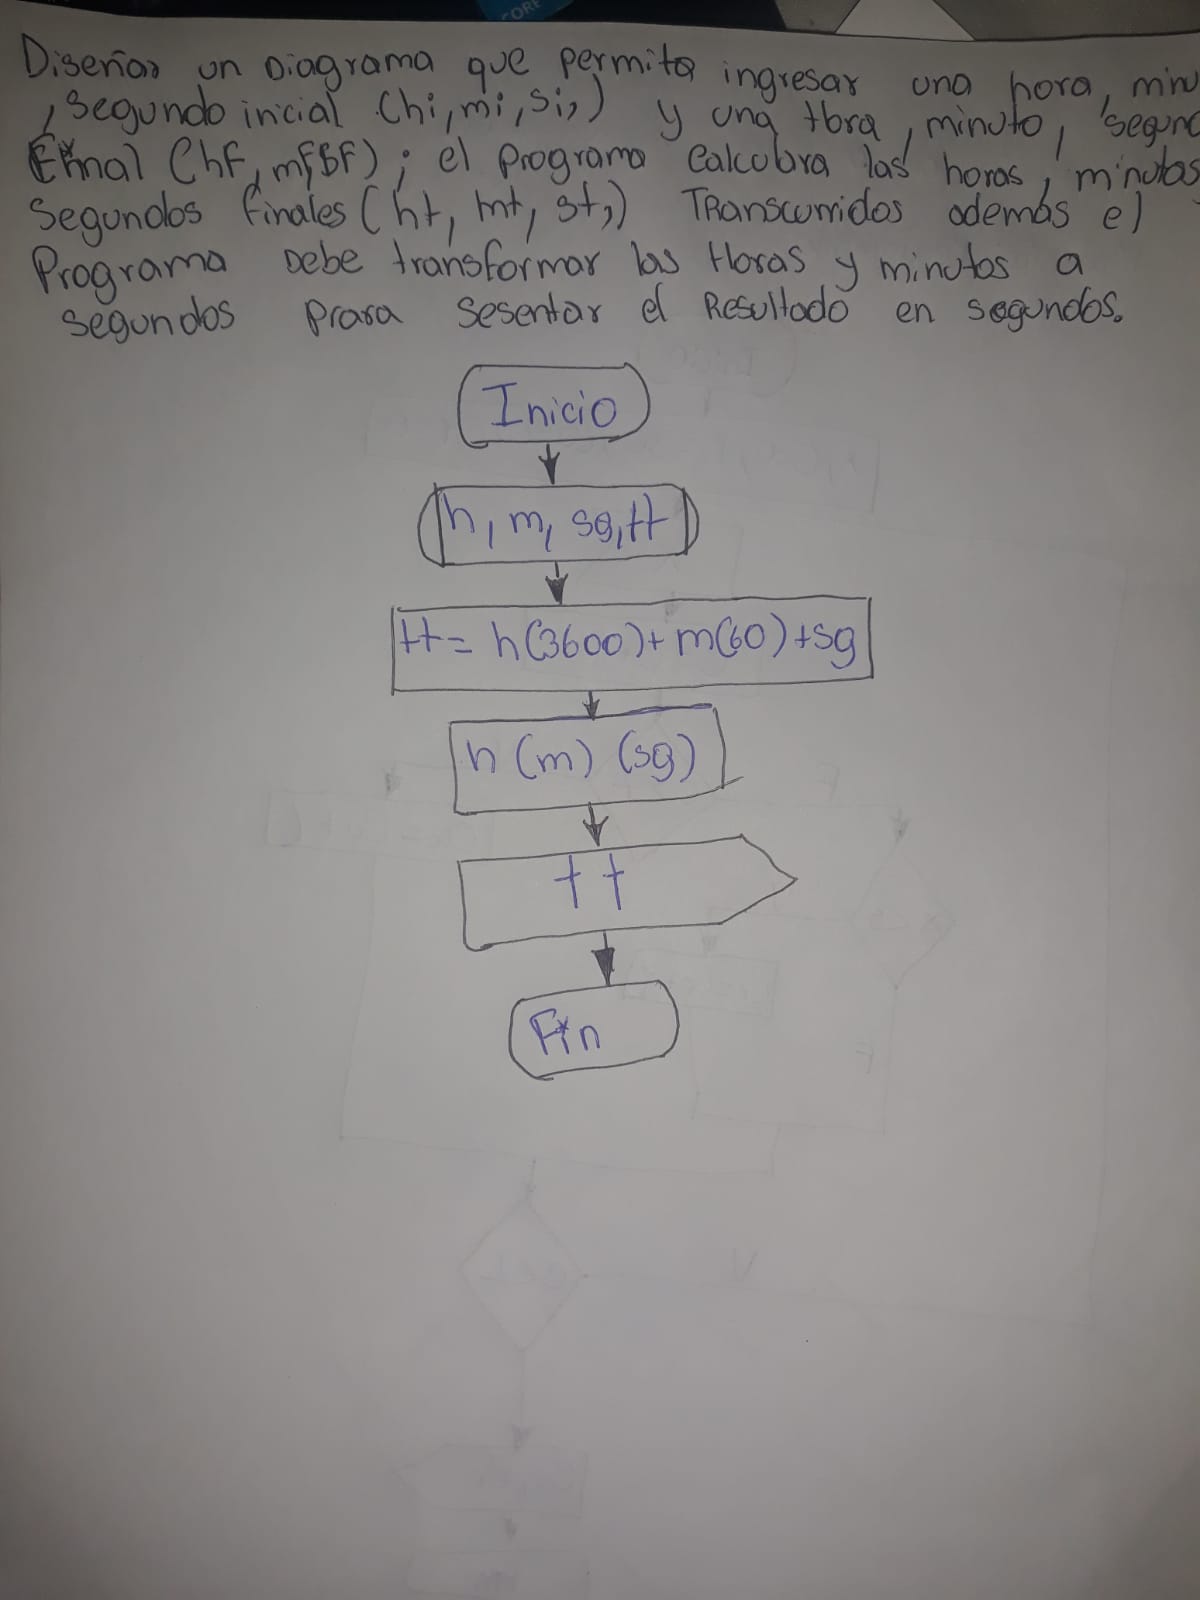 CORE
Diseñar un Diagrama que permita ingresar una hora, minu
, segundo inicial (hi, mi, si,) y una Hora, minuto, segund
Final (hF, mF, SF); el programa Calculara las horas, minutos
Segundos finales (ht, mt, st,) TRanscurridos además el
Programa Debe transformar las Horas y minutos a
segundos prara sesentar el Resultado en segundos.
Inicio
h, m, sg, tt
tt = h(3600) + m(60) + sg
h (m) (sg)
tt
Fin